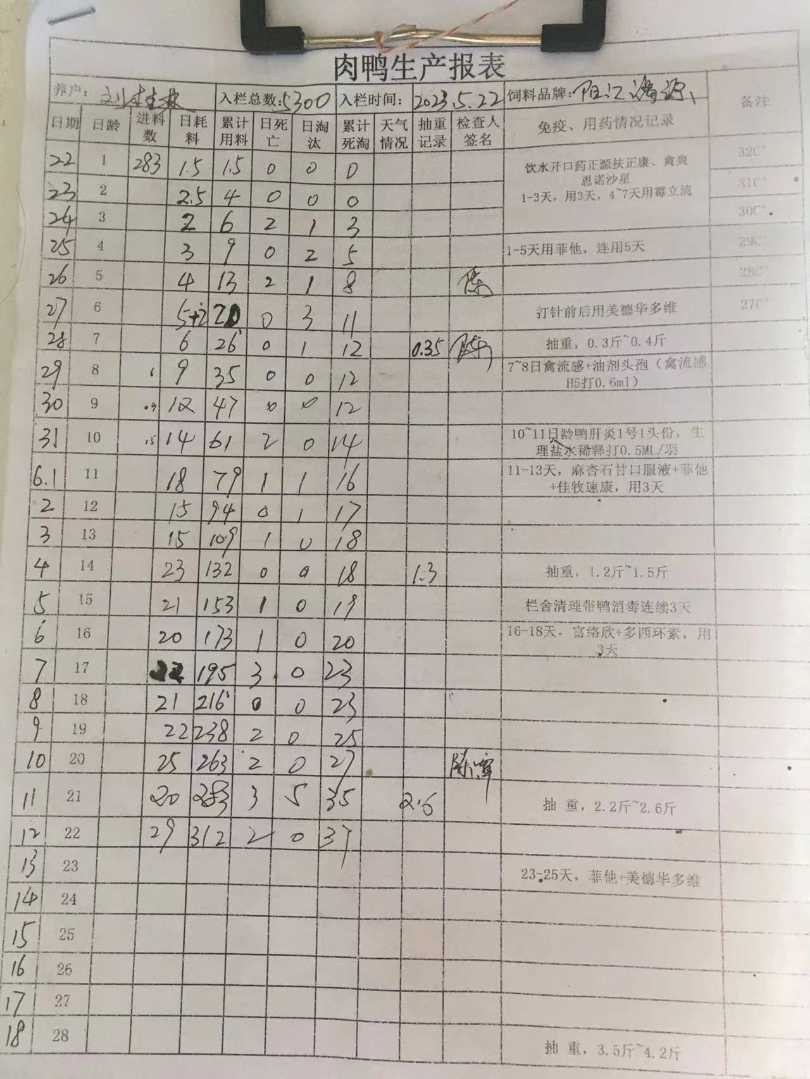 肉鸭生产报表
养户： 入栏总数:5300 入栏时间: 2023.5.22 饲料品牌:阳江
日期 日龄 进料数 日耗料 累计用料 日死亡 日淘汰 累计死淘 天气情况 抽重记录 检查人签名 免疫、用药情况记录 备注
22 1 283 1.5 1.5 0 0 0 饮水开口药正源扶正康、禽爽 32C°
恩诺沙星
1-3天，用3天，4~7天用霉立流
23 2 2.5 4 0 0 0 31C°
24 3 2 6 2 1 3 30C°
25 4 3 9 0 2 5 1-5天用菲他，连用5天 29C°
26 5 4 13 2 1 8 陈 28C°
27 6 5+2 20 0 3 11 汀针前后用美德华多维 27C°
28 7 6 26 0 1 12 0.35 陈 抽重，0.3斤~0.4斤
29 8 9 35 0 0 12 7~8日禽流感+油剂头孢（禽流感
H5打0.6ml）
30 9 12 47 0 0 12
31 10 14 61 2 0 14 10~11日龄鸭肝炎1号1头份，生
理盐水稀释打0.5ML/羽
6.1 11 18 79 1 1 16 11-13天，麻杏石甘口服液+菲他
+佳牧速康，用3天
2 12 15 94 0 1 17
3 13 15 109 1 0 18
4 14 23 132 0 0 18 1.3 抽重，1.2斤~1.5斤
5 15 21 153 1 0 19 栏舍清理带鸭消毒连续3天
6 16 20 173 1 0 20 16-18天，富络欣+多西环素，用
3天
7 17 22 195 3 0 23
8 18 21 216 0 0 23
9 19 22 238 2 0 25
10 20 25 263 2 0 27
11 21 20 283 3 5 35 2.6 抽 重，2.2斤~2.6斤
12 22 29 312 2 0 37
13 23 23-25天，菲他+美德华多维
14 24
15 25
16 26
17 27
18 28 抽 重，3.5斤~4.2斤